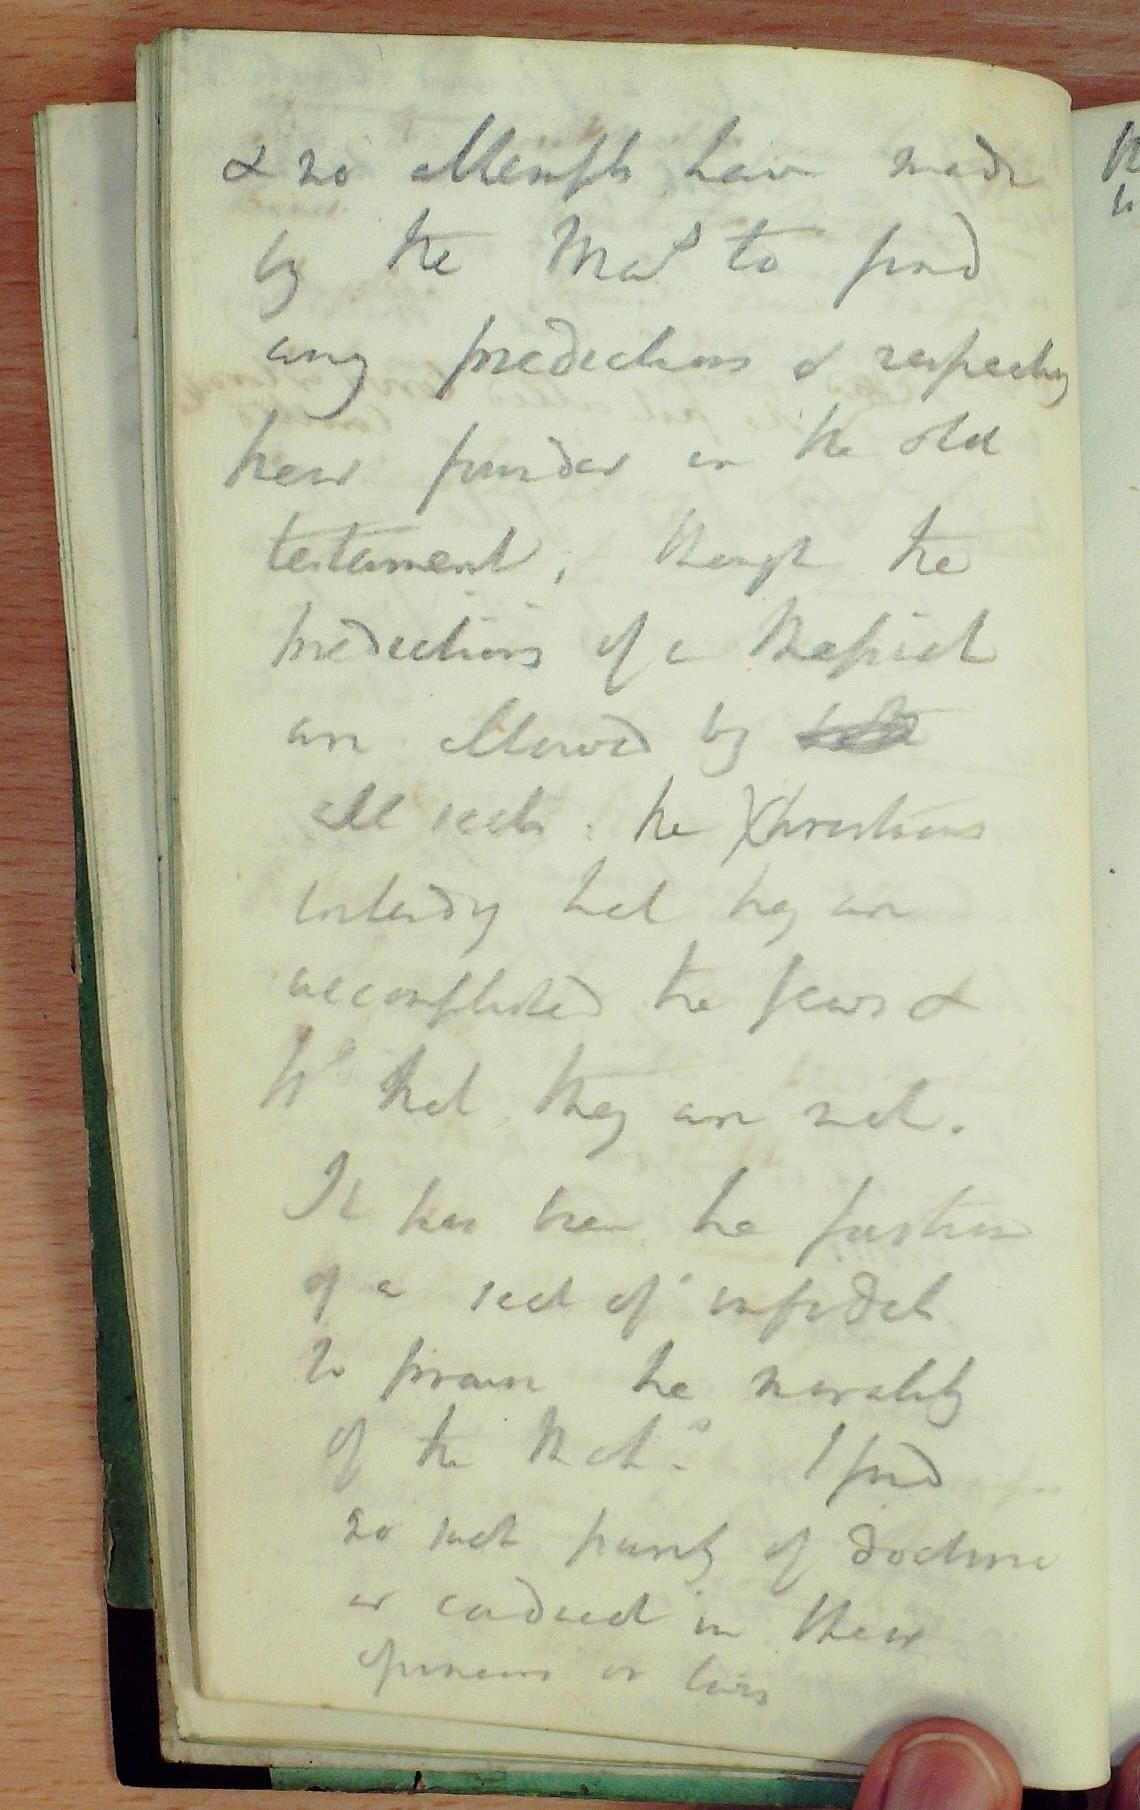 & no attempts have made
by the Mas to find
any predictions of respecting
their founder in the old
testament; though the
predictions of a Messiah
are allowed by
all sects: the Christians
contending that they are
accomplished the Jews &
Ms that they are not.
It has been the fashion
of a sect of infidels
to praise the morality
of the Mahs. I find
no such purity of doctrine
or conduct in their
opinions or lives